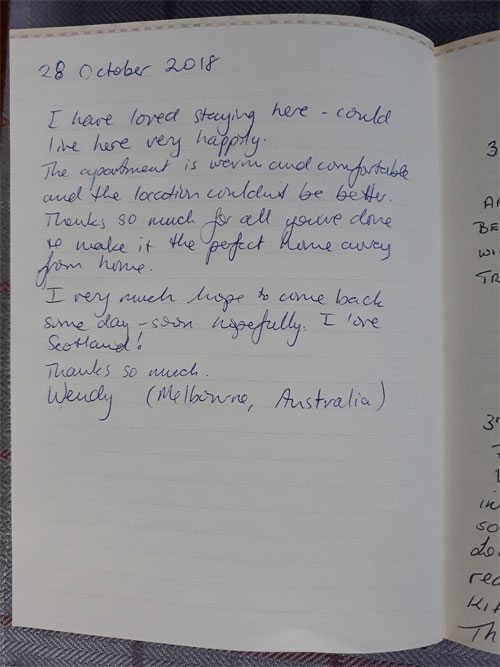 28 October 2018
I have loved staying here - could
live here very happily.
The apartment is warm and comfortable
and the location couldnt be better.
Thanks so much for all you've done
to make it the perfect home away
from home.
I very much hope to come back
some day - soon hopefully. I love
Scotland!
Thanks so much.
Wendy (Melbourne, Australia)
3
BE
WI
TR
in
so
rea
Th